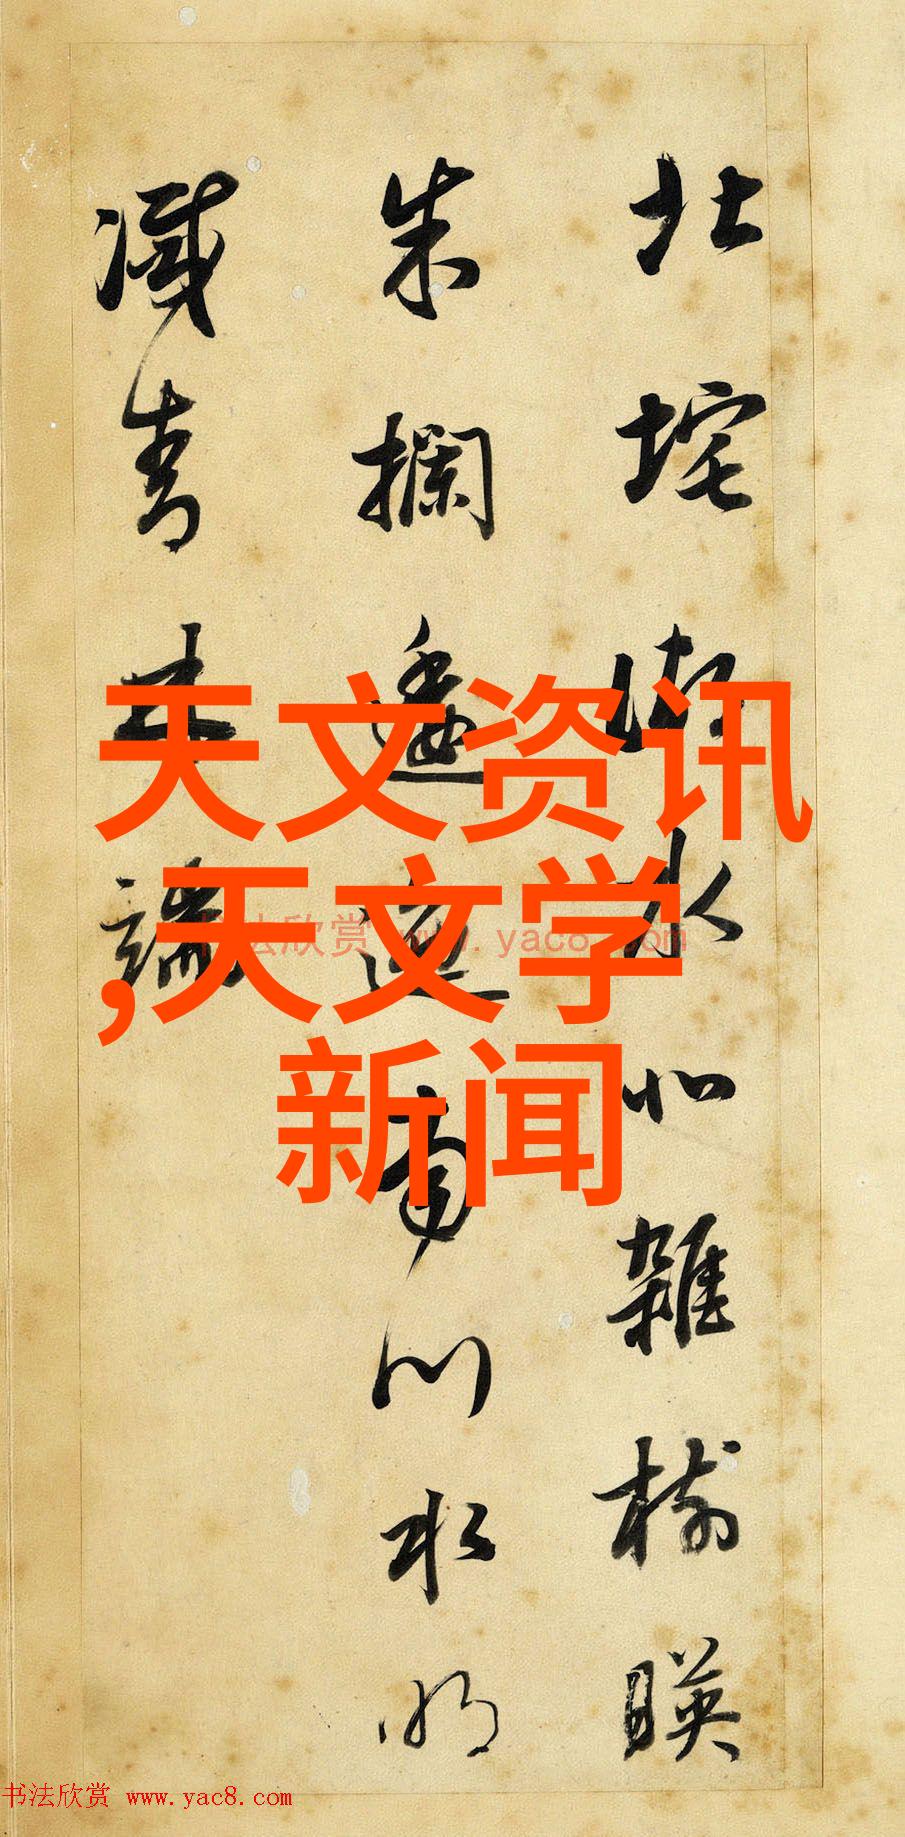 北垞湖水北雜樹暎
朱欄逶迤南川水明
滅青林端
天文资讯
,天文学
新闻
书法欣赏 www.yac8.com
书法欣赏 www.yac8.com